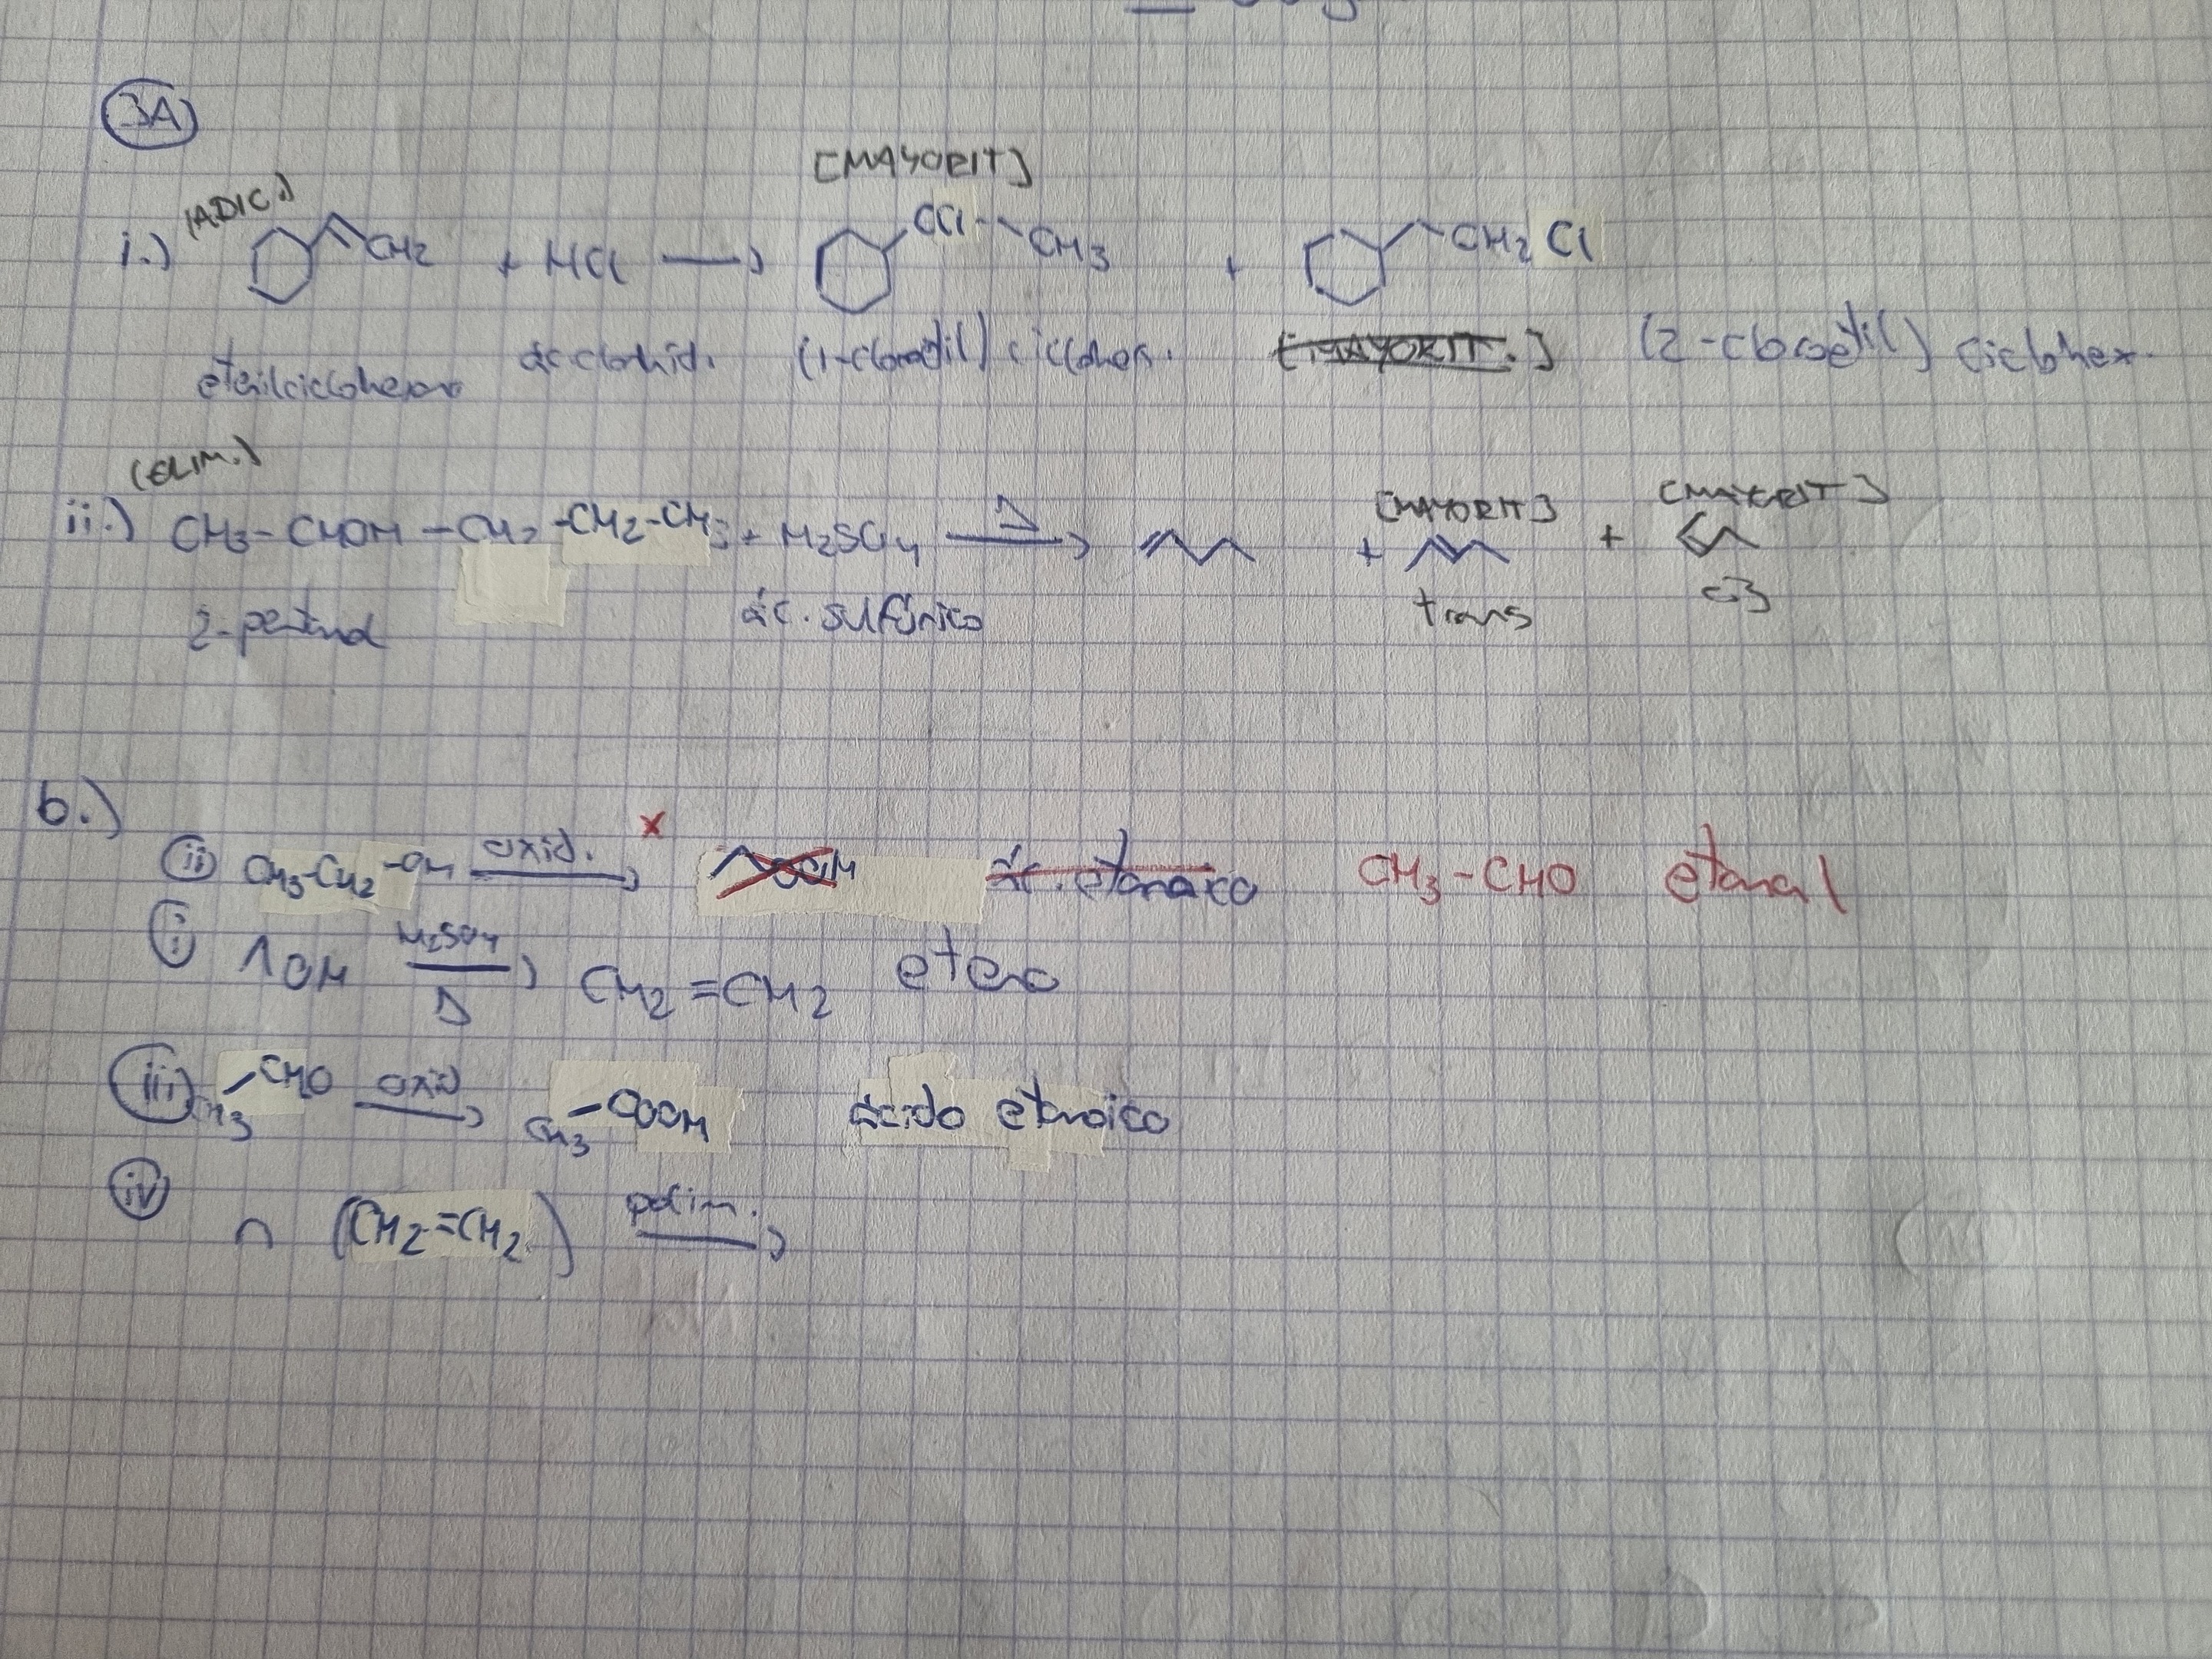 3A
[MAYORIT]
(ADIC.)
i.) CH2 + HCl → CCl - CH3 + CH2 Cl
etenilciclohexano ác. clorhíd. (1-cloroetil) ciclohex. [MAYORIT.] (2-cloroetil) ciclohex.
(ELIM.)
[MAYORIT] [MAYORIT]
ii.) CH3-CHOH-CH2-CH2-CH3 + H2SO4 Δ → + +
2-pentanol ác. sulfúrico trans cis
b.)
ii CH3-CH2-OH oxid. → x COOH ác. etanoico CH3-CHO etanal
i OH H2SO4 → Δ CH2=CH2 eteno
iii CH3-CHO oxid → CH3-COOH ácido etanoico
iv n (CH2=CH2) polim. →